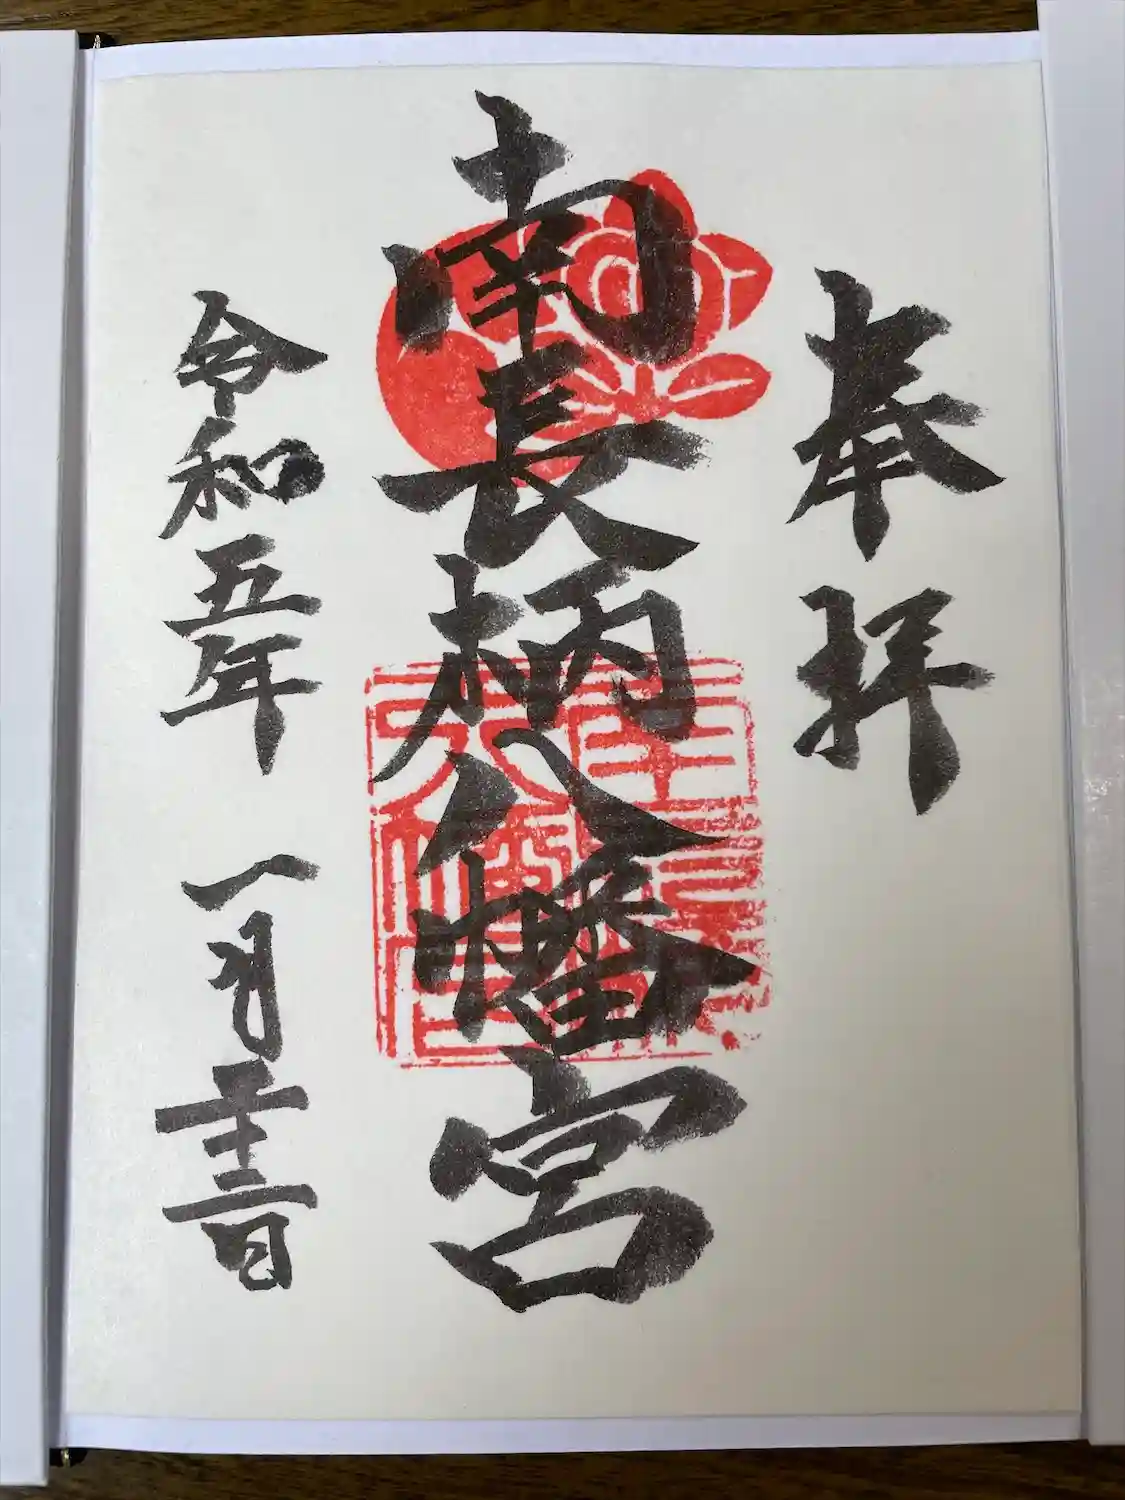 奉拝
南長柄八幡宮
令和五年 一月二十二日